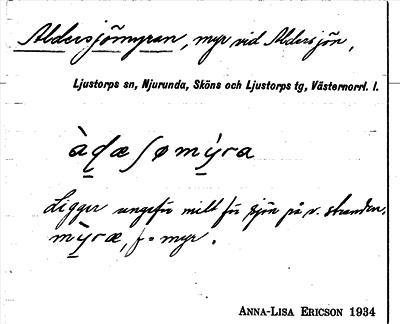 Aldersjömyran, myr vid Aldersjön,
Ljustorps sn, Njurunda, Sköns och Ljustorps tg, Västernorrl. l.
Ligger ungefär mitt för sjön på v. stranden.
f = myr.
ANNA-LISA ERICSON 1934